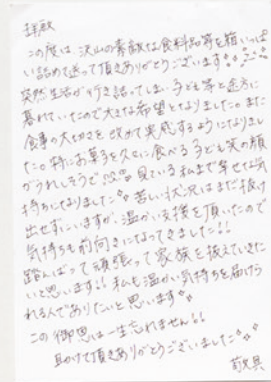 拝啓
この度は、沢山の素敵な食料品等を箱いっぱ
い詰めて送って頂きありがとうございます
突然生活が行き詰ってしまい子ども等と途方に
暮れていたので大きな希望となりました。また
食事の大切さを改めて実感するようになりまし
た。特にお菓子を久々に食べる子ども達の顔
がうれしそうで 見ている私まで幸せな気
持ちになりました 苦しい状況はまだ抜け
出せずにいますが、温かい支援を頂いたので
気持ちも前向きになってきました!!
踏んばって頑張って家族を支えていきた
いと思います!! 私も温かい気持ちを届けら
れる人でありたいと思います
この御恩は一生忘れません!!
助けて頂きありがとうございました
敬具